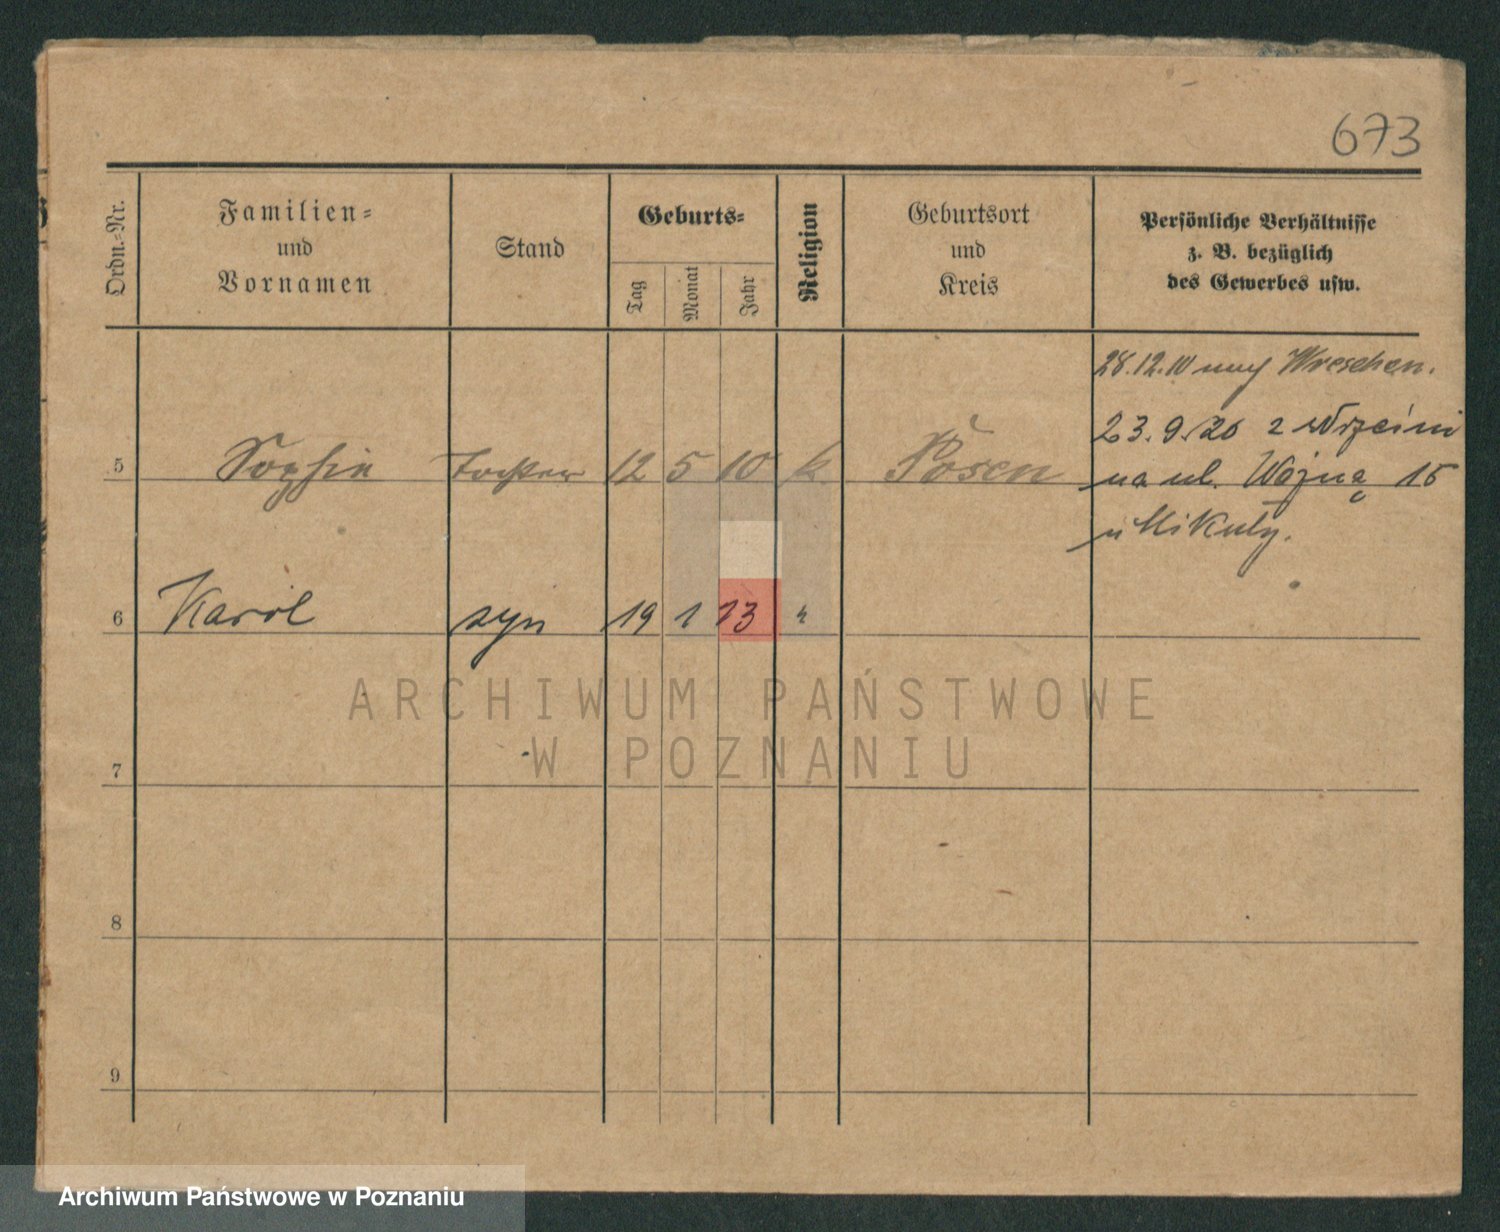 673
Ordn.=Nr.
Familien=
und
Vornamen
Stand
Geburts=
Tag
Monat
Jahr
Religion
Geburtsort
und
Kreis
Persönliche Verhältnisse
z. B. bezüglich
des Gewerbes usw.
28.12.10 nach Wreschen.
23.9.20 z Wrześni
5 Sophie Tochter 12 5 10 k Posen
na ul. Wojną 15
u Mikuły.
6 Karol syn 19 1 13 "
7
8
9
ARCHIWUM PAŃSTWOWE
W POZNANIU
Archiwum Państwowe w Poznaniu